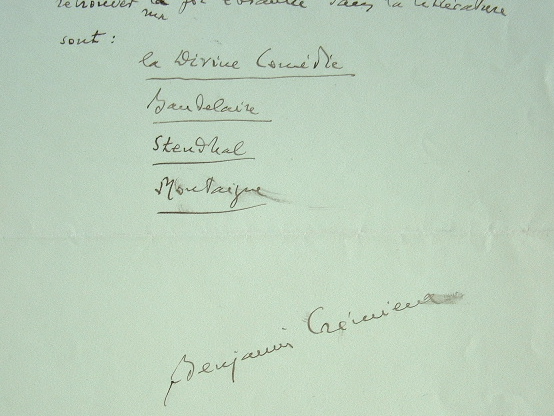 retrouver la foi ébranlée dans la littérature
ma
sont :
la Divine Comédie
Baudelaire
Stendhal
Montaigne
Benjamin Crémieux